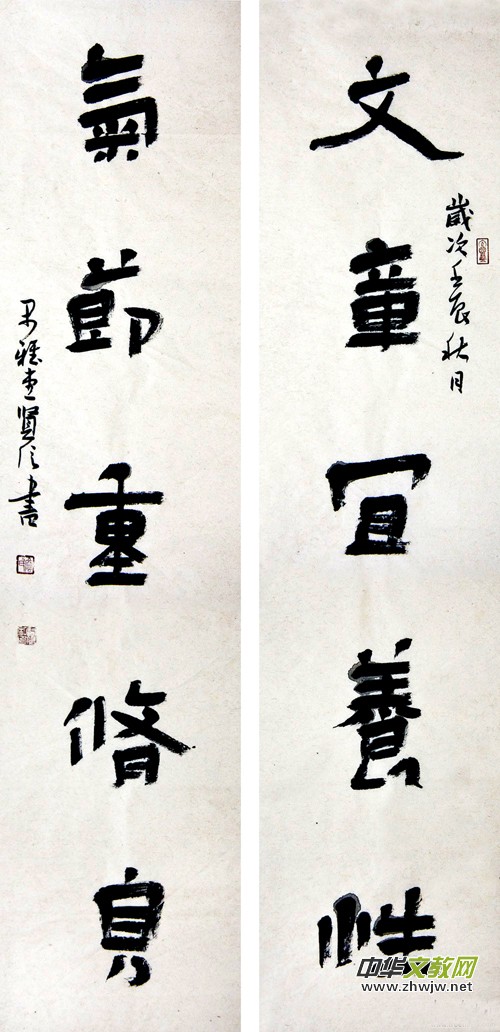 文章冝養性
歲次壬辰秋月
氣節重脩身
賢書
中华文教网
www.zhwjw.net